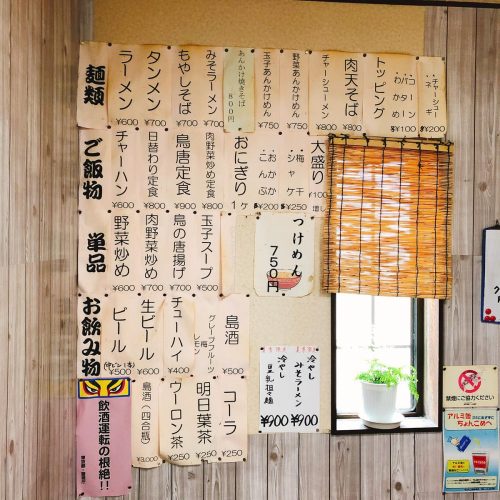 麺類
ラーメン ¥600
タンメン ¥700
もやしそば ¥700
みそラーメン ¥700
あんかけ焼きそば 800円
玉子あんかけめん ¥750
野菜あんかけめん ¥750
チャーシューメン ¥800
肉天そば ¥800
トッピング
わかめ
バター
コーン ¥100
チャーシュー
ネギ ¥200
ご飯物
チャーハン ¥600
日替わり定食 ¥800
鳥唐定食 ¥900
肉野菜炒め定食 ¥800
おにぎり 1ヶ
おかか
こんぶ ¥200
梅干
シャケ ¥250
大盛り ¥100増し
単品
野菜炒め ¥600
肉野菜炒め ¥700
鳥の唐揚げ ¥700
玉子スープ ¥500
つけめん
750円
お飲み物
ビール (中ビン1本) ¥500
生ビール ¥600
チューハイ ¥400
グレープフルーツ
梅
レモン
島酒 ¥500
島酒(四合瓶) ¥3,000
ウーロン茶 ¥250
明日葉茶 ¥250
コーラ ¥250
冷やし
みそラーメン
¥900
冷やし
豆乳担々麺
¥900
飲酒運転の根絶!!
禁煙にご協力ください
アルミ缶
ちょんこめへ